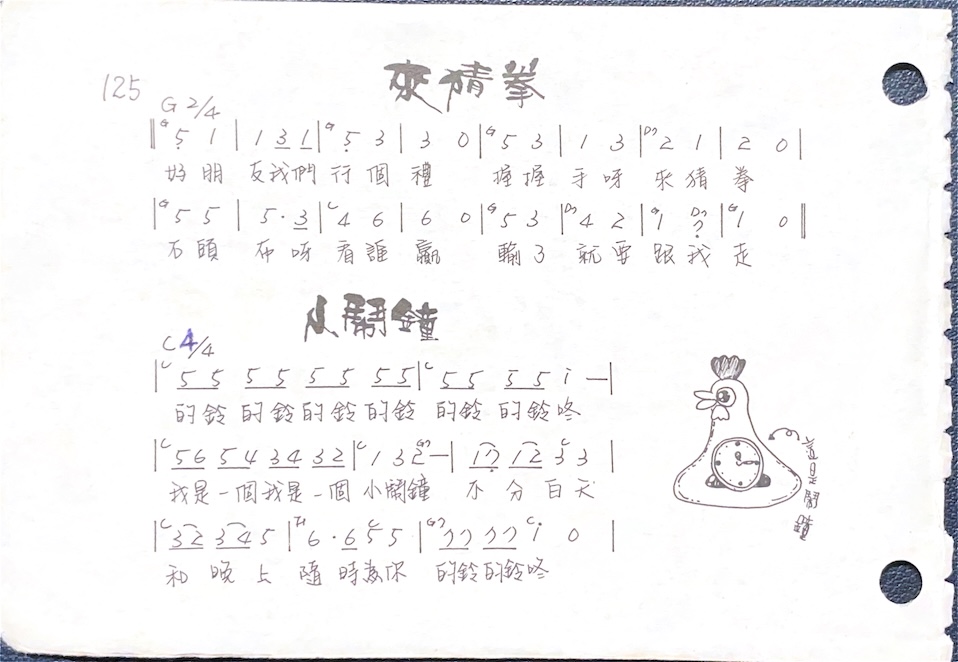 125
來猜拳
G 2/4
‖G 5̣ 1 | 1 3 1 |G 5̣ 3 | 3 0 |G 5 3 | 1 3 |D7 2 1 | 2 0 |
好朋 友我們 行個 禮 握握 手呀 來猜 拳
|G 5 5 | 5·3 |C 4 6 | 6 0 |G 5 3 |D7 4 2 |G 1 D7 7̣ |G 1 0 ‖
石頭 布呀 看誰 贏 輸了 就要 跟我 走
小鬧鐘
C 4/4
|C 5 5 5 5 5 5 5 5 |C 5 5 5 5 i — |
的鈴 的鈴 的鈴 的鈴 的鈴 的鈴咚
|C 5 6 5 4 3 4 3 2 |C 1 3 G7 2 — | 1 7̣ 1 2 C 3 3 |
我是一個我是一個 小鬧鐘 不分白天
|C 3 2 3 4 5 |F 6·6 C 5 5 |G7 7 7 7 7 C i 0 |
和晚上 隨時為你 的鈴的鈴咚
這是鬧鐘